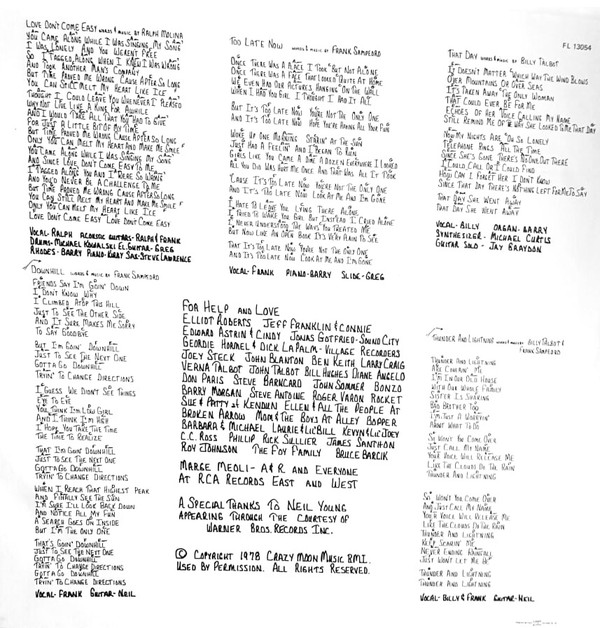 LOVE DON'T COME EASY WORDS & MUSIC BY RALPH MOLINA
YOU CAME ALONG WHILE I WAS SINGING MY SONG
I WAS LONELY AND YOU WEREN'T FREE
SO I TAGGED ALONG, WHEN I KNEW I WAS WRONG
AND TOOK ANOTHER MAN'S COMPANY
BUT TIME PROVED ME WRONG CAUSE AFTER SO LONG
YOU CAN STILL MELT MY HEART LIKE ICE
THOUGHT I COULD LEAVE YOU WHENEVER I PLEASED
WHY NOT LIVE LIKE A KING FOR AWHILE
AND I WOULD TAKE ALL THAT YOU HAD TO GIVE
FOR JUST A LITTLE BIT OF MY TIME
BUT TIME PROVED ME WRONG CAUSE AFTER SO LONG
ONLY YOU CAN MELT MY HEART AND MAKE ME SMILE
YOU CAME ALONG WHILE I WAS SINGING MY SONG
AND SINCE LOVE, DON'T COME EASY TO ME
I TAGGED ALONG YOU AND I WERE SO WRONG
AND YOU'D NEVER BE A CHALLENGE TO ME
BUT TIME PROVED ME WRONG CAUSE AFTER SO LONG
YOU CAN STILL MELT MY HEART AND MAKE ME SMILE
ONLY YOU CAN MELT MY HEART LIKE ICE
LOVE DON'T COME EASY LOVE DON'T COME EASY
VOCAL-RALPH ACOUSTIC GUITARS-RALPH & FRANK
DRUMS-MICHAEL KOWALSKI EL. GUITAR-GREG
RHODES-BARRY PIANO-KIRBY SAX-STEVE LAWRENCE
DOWNHILL WORDS & MUSIC BY FRANK SAMPEDRO
FRIENDS SAY I'M GOIN' DOWN
I DON'T KNOW WHY
I CLIMBED ATOP THIS HILL
JUST TO SEE THE OTHER SIDE
AND IT SURE MAKES ME SORRY
TO SAY GOODBYE
BUT I'M GOIN' DOWNHILL
JUST TO SEE THE NEXT ONE
GOTTA GO DOWNHILL
TRYIN' TO CHANGE DIRECTIONS
I GUESS WE DIDN'T SEE THINGS
EYE TO EYE
YOU THINK I'M LOW GIRL
AND I THINK I'M HIGH
I HOPE YOU TAKE THE TIME
THE TIME TO REALIZE
THAT I'M GOIN' DOWNHILL
JUST TO SEE THE NEXT ONE
GOTTA GO DOWNHILL
TRYIN' TO CHANGE DIRECTIONS
WHEN I REACH THAT HIGHEST PEAK
AND FINALLY SEE THE SUN
I'M SURE I'LL LOOK BACK DOWN
AND NOTICE ALL MY FUN
A SEARCH GOES ON INSIDE
BUT I'M THE ONLY ONE
THAT'S GOIN' DOWNHILL
JUST TO SEE THE NEXT ONE
GOTTA GO DOWNHILL
TRYIN' TO CHANGE DIRECTIONS
GOTTA GO DOWNHILL
TRYIN' TO CHANGE DIRECTIONS
VOCAL-FRANK GUITAR-NEIL
TOO LATE NOW WORDS & MUSIC BY FRANK SAMPEDRO
ONCE THERE WAS A PLACE I TOOK BUT NOT ALONE
ONCE THERE WAS A FACE THAT LOOKED QUITE AT HOME
WE EVEN HAD OUR PICTURES HANGING ON THE WALL
WHEN I HAD YOU GIRL I THOUGHT I HAD IT ALL
BUT IT'S TOO LATE NOW YOU'RE NOT THE ONLY ONE
AND IT'S TOO LATE NOW HOPE YOU'RE HAVING ALL YOUR FUN
WOKE UP ONE MORNING STARIN' AT THE SUN
JUST HAD A FEELIN' AND I BEGAN TO RUN
GIRLS LIKE YOU CAME A DIME A DOZEN EVERYWHERE I LOOKED
ALL YOU DID WAS HURT ME ONCE AND THAT WAS ALL IT TOOK
'CAUSE IT'S TOO LATE NOW YOU'RE NOT THE ONLY ONE
AND IT'S TOO LATE NOW LOOK AT ME AND I'M GONE
I HATE TO LEAVE YOU LYING THERE ALONE
I TRIED TO WAKE YOU GIRL BUT INSTEAD I CRIED ALONE
I NEVER UNDERSTOOD THE WAYS YOU TREATED ME
BUT NOW LIKE AN OPEN BOOK IT'S VERY PLAIN TO SEE
THAT IT'S TOO LATE NOW YOU'RE NOT THE ONLY ONE
AND IT'S TOO LATE NOW LOOK AT ME AND I'M GONE
VOCAL-FRANK PIANO-BARRY SLIDE-GREG
FOR HELP AND LOVE
ELLIOT ROBERTS JEFF FRANKLIN & CONNIE
EDWARD ASTRIN & CINDY JONAS GOTFRIED-SOUND CITY
GEORDIE HORMEL & DICK LA PALM-VILLAGE RECORDERS
JOEY STECK JOHN BLANTON BEN KEITH LARRY CRAIG
VERNA TALBOT JOHN TALBOT BILL HUGHES DIANE ANGELO
DON PARIS STEVE BARNCARD JOHN SOMMER BONZO
BARRY MORGAN STEVE ANTOINE ROGER VARON ROCKET
SUE & PATTY AT KENDUN ELLEN & ALL THE PEOPLE AT
BROKEN ARROW MOM & THE BOYS AT ALLEY BOPPER
BARBARA & MICHAEL LAURIE & LIC'BILL KEVYN & LIC'JOEY
C.C. ROSS PHILLIP RICK SULLIER JAMES SANTHON
ROY JOHNSON THE FOY FAMILY BRUCE BARCIK
MARGE MEOLI - A & R AND EVERYONE
AT RCA RECORDS EAST AND WEST
A SPECIAL THANKS TO NEIL YOUNG
APPEARING THROUGH THE COURTESY OF
WARNER BROS. RECORDS INC.
© COPYRIGHT 1978 CRAZY MOON MUSIC BMI.
USED BY PERMISSION. ALL RIGHTS RESERVED.
FL 13054
THAT DAY WORDS & MUSIC BY BILLY TALBOT
IT DOESN'T MATTER WHICH WAY THE WIND BLOWS
OVER MOUNTAINS OR OVER SEAS
IT'S TAKEN AWAY THE ONLY WOMAN
THAT COULD EVER BE FOR ME
ECHOES OF HER VOICE CALLING MY NAME
STILL REMIND ME OF HOW SHE LOOKED TIME THAT DAY
NOW MY NIGHTS ARE OH SO LONELY
TELEPHONE RINGS ALL THE TIME
SINCE SHE'S GONE THERE'S NO ONE OUT THERE
I COULD CALL OR I COULD FIND
HOW CAN I FORGET HER I DON'T KNOW
SINCE THAT DAY THERE'S NOTHING LEFT FOR ME TO SAY
THAT DAY SHE WENT AWAY
THAT DAY SHE WENT AWAY
VOCAL-BILLY ORGAN-BARRY
SYNTHESIZER-MICHAEL CURTIS
GUITAR SOLO-JAY GRAYDON
THUNDER AND LIGHTNING WORDS & MUSIC BY BILLY TALBOT &
FRANK SAMPEDRO
THUNDER AND LIGHTNING
ARE CHASIN' ME
I'M IN OUR OLD HOUSE
WITH OUR WHOLE FAMILY
SISTER IS SHAKING
BIG BROTHER TOO
I'M JUST A WORRYIN'
ABOUT WHAT TO DO
SO WON'T YOU COME OVER
JUST CALL MY NAME
YOUR VOICE WILL RELEASE ME
LIKE THE CLOUDS DO THE RAIN
THUNDER AND LIGHTNING
SO WON'T YOU COME OVER
AND JUST CALL MY NAME
YOUR VOICE WILL RELEASE ME
LIKE THE CLOUDS DO THE RAIN
THUNDER AND LIGHTNING
KEEP SCARIN' ME
NEVER ENDING RAINFALL
JUST WON'T LET ME BE
THUNDER AND LIGHTNING
THUNDER AND LIGHTNING
VOCAL-BILLY & FRANK GUITAR-NEIL